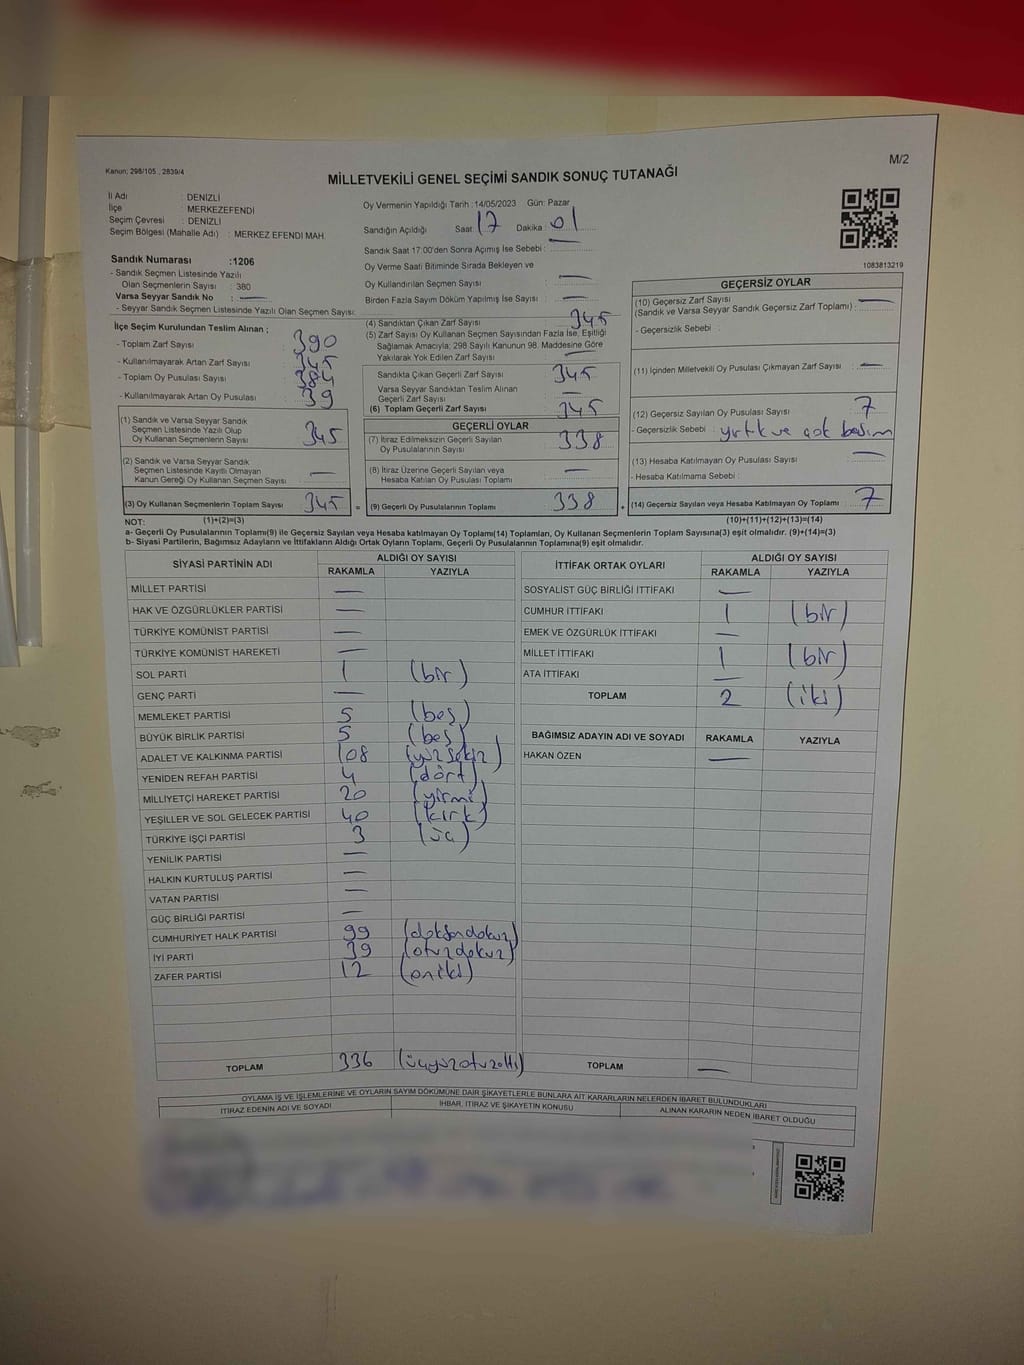 Kanun; 298/105 , 2839/4
M/2
MİLLETVEKİLİ GENEL SEÇİMİ SANDIK SONUÇ TUTANAĞI
İl Adı : DENİZLİ
İlçe : MERKEZEFENDİ
Seçim Çevresi : DENİZLİ
Seçim Bölgesi (Mahalle Adı) : MERKEZ EFENDİ MAH.
Sandık Numarası :1206
- Sandık Seçmen Listesinde Yazılı
Olan Seçmenlerin Sayısı : 380
Varsa Seyyar Sandık No : —
- Seyyar Sandık Seçmen Listesinde Yazılı Olan Seçmen Sayısı:
Oy Vermenin Yapıldığı Tarih :14/05/2023 Gün: Pazar
Sandığın Açıldığı Saat: 17 Dakika: 01
Sandık Saat 17:00'den Sonra Açımış İse Sebebi : —
Oy Verme Saati Bitiminde Sırada Bekleyen ve
Oy Kullandırılan Seçmen Sayısı : —
Birden Fazla Sayım Döküm Yapılmış İse Sayısı : —
1083813219
İlçe Seçim Kurulundan Teslim Alınan ;
- Toplam Zarf Sayısı : 390
- Kullanılmayarak Artan Zarf Sayısı : 345
- Toplam Oy Pusulası Sayısı : 384
- Kullanılmayarak Artan Oy Pusulası : 39
(1) Sandık ve Varsa Seyyar Sandık
Seçmen Listesinde Yazılı Olup
Oy Kullanan Seçmenlerin Sayısı : 345
(2) Sandık ve Varsa Seyyar Sandık
Seçmen Listesinde Kayıtlı Olmayan
Kanun Gereği Oy Kullanan Seçmen Sayısı : —
(3) Oy Kullanan Seçmenlerin Toplam Sayısı : 345
(4) Sandıktan Çıkan Zarf Sayısı : 345
(5) Zarf Sayısı Oy Kullanan Seçmen Sayısından Fazla İse, Eşitliği
Sağlamak Amacıyla; 298 Sayılı Kanunun 98. Maddesine Göre
Yakılarak Yok Edilen Zarf Sayısı : —
Sandıkta Çıkan Geçerli Zarf Sayısı : 345
Varsa Seyyar Sandıktan Teslim Alınan
Geçerli Zarf Sayısı : —
(6) Toplam Geçerli Zarf Sayısı : 345
GEÇERLİ OYLAR
(7) İtiraz Edilmeksizin Geçerli Sayılan
Oy Pusulalarının Sayısı : 338
(8) İtiraz Üzerine Geçerli Sayılan veya
Hesaba Katılan Oy Pusulası Toplamı : —
= (9) Geçerli Oy Pusulalarının Toplamı : 338 +
GEÇERSİZ OYLAR
(10) Geçersiz Zarf Sayısı
(Sandık ve Varsa Seyyar Sandık Geçersiz Zarf Toplamı) : —
- Geçersizlik Sebebi :
(11) İçinden Milletvekili Oy Pusulası Çıkmayan Zarf Sayısı : —
(12) Geçersiz Sayılan Oy Pusulası Sayısı : 7
- Geçersizlik Sebebi : yırtık ve çok basım
(13) Hesaba Katılmayan Oy Pusulası Sayısı : —
- Hesaba Katılmama Sebebi :
(14) Geçersiz Sayılan veya Hesaba Katılmayan Oy Toplamı : 7
NOT: (1)+(2)=(3) (10)+(11)+(12)+(13)=(14)
a- Geçerli Oy Pusulalarının Toplamı(9) ile Geçersiz Sayılan veya Hesaba katılmayan Oy Toplamı(14) Toplamları, Oy Kullanan Seçmenlerin Toplam Sayısına(3) eşit olmalıdır. (9)+(14)=(3)
b- Siyasi Partilerin, Bağımsız Adayların ve İttifakların Aldığı Ortak Oyların Toplamı, Geçerli Oy Pusulalarının Toplamına(9) eşit olmalıdır.
SİYASİ PARTİNİN ADI ALDIĞI OY SAYISI
RAKAMLA YAZIYLA
MİLLET PARTİSİ —
HAK VE ÖZGÜRLÜKLER PARTİSİ —
TÜRKİYE KOMÜNİST PARTİSİ —
TÜRKİYE KOMÜNİST HAREKETİ —
SOL PARTİ 1 (bir)
GENÇ PARTİ —
MEMLEKET PARTİSİ 5 (beş)
BÜYÜK BİRLİK PARTİSİ 5 (beş)
ADALET VE KALKINMA PARTİSİ 108 (yüzsekiz)
YENİDEN REFAH PARTİSİ 4 (dört)
MİLLİYETÇİ HAREKET PARTİSİ 20 (yirmi)
YEŞİLLER VE SOL GELECEK PARTİSİ 40 (kırk)
TÜRKİYE İŞÇİ PARTİSİ 3 (üç)
YENİLİK PARTİSİ —
HALKIN KURTULUŞ PARTİSİ —
VATAN PARTİSİ —
GÜÇ BİRLİĞİ PARTİSİ —
CUMHURİYET HALK PARTİSİ 99 (doksandokuz)
İYİ PARTİ 39 (otuzdokuz)
ZAFER PARTİSİ 12 (oniki)
TOPLAM 336 (üçyüzotuzaltı)
İTTİFAK ORTAK OYLARI ALDIĞI OY SAYISI
RAKAMLA YAZIYLA
SOSYALİST GÜÇ BİRLİĞİ İTTİFAKI —
CUMHUR İTTİFAKI 1 (bir)
EMEK VE ÖZGÜRLÜK İTTİFAKI —
MİLLET İTTİFAKI 1 (bir)
ATA İTTİFAKI —
TOPLAM 2 (iki)
BAĞIMSIZ ADAYIN ADI VE SOYADI RAKAMLA YAZIYLA
HAKAN ÖZEN —
TOPLAM —
OYLAMA İŞ VE İŞLEMLERİNE VE OYLARIN SAYIM DÖKÜMÜNE DAİR ŞİKAYETLERLE BUNLARA AİT KARARLARIN NELERDEN İBARET BULUNDUKLARI
İTİRAZ EDENİN ADI VE SOYADI İHBAR, İTİRAZ VE ŞİKAYETİN KONUSU ALINAN KARARIN NEDEN İBARET OLDUĞU